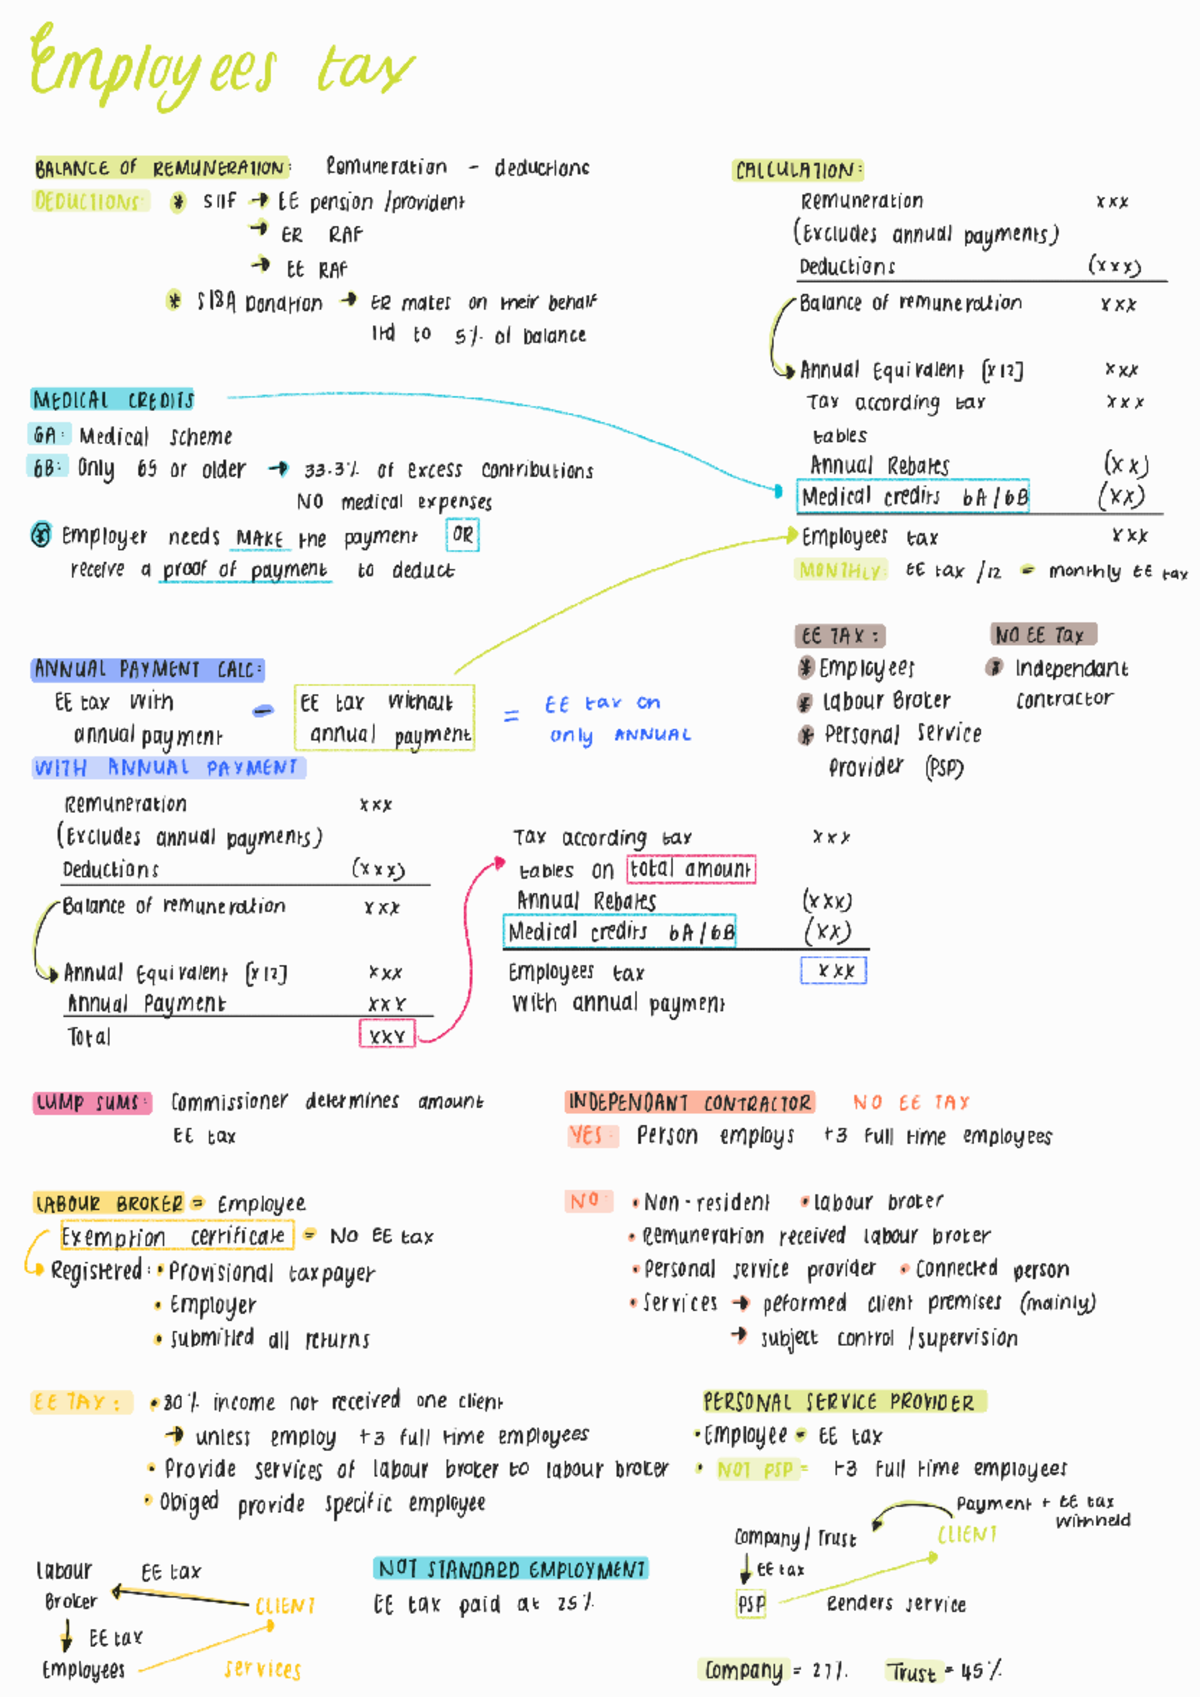 Employees tax
BALANCE OF REMUNERATION: Remuneration - deductions
DEDUCTIONS: * S11F → EE pension /provident
→ ER RAF
→ EE RAF
* S18A Donation → ER makes on their behalf
ltd to 5% of balance
CALCULATION:
Remuneration xxx
(Excludes annual payments)
Deductions (xxx)
Balance of remuneration xxx
Annual Equivalent [x12] xxx
Tax according tax xxx
tables
Annual Rebates (xx)
Medical credits 6A/6B (xx)
Employees tax xxx
MONTHLY: EE tax /12 = monthly EE tax
MEDICAL CREDITS
6A: Medical scheme
6B: Only 65 or older → 33.3% of excess contributions
NO medical expenses
* Employer needs MAKE the payment OR
receive a proof of payment to deduct
EE TAX:
* Employees
* Labour Broker
* Personal Service
Provider (PSP)
NO EE Tax
* Independant
contractor
ANNUAL PAYMENT CALC:
EE tax with - EE tax without = EE tax on
annual payment annual payment only ANNUAL
WITH ANNUAL PAYMENT
Remuneration xxx
(Excludes annual payments)
Deductions (xxx)
Balance of remuneration xxx
Annual Equivalent [x12] xxx
Annual Payment xxx
Total xxx
Tax according tax xxx
tables on total amount
Annual Rebates (xxx)
Medical credits 6A/6B (xx)
Employees tax xxx
with annual payment
LUMP SUMS: Commissioner determines amount
EE tax
INDEPENDANT CONTRACTOR NO EE TAX
YES: Person employs +3 full time employees
NO: • Non-resident • labour broker
• Remuneration received labour broker
• Personal service provider • Connected person
• Services → peformed client premises (mainly)
→ subject control /supervision
LABOUR BROKER = Employee
Exemption certificate = NO EE tax
Registered: • Provisional taxpayer
• Employer
• submitted all returns
EE TAX: • 80% income not received one client
→ unless employ +3 full time employees
• Provide services of labour broker to labour broker
• Obiged provide specific employee
PERSONAL SERVICE PROVIDER
• Employee = EE tax
• NOT PSP = +3 Full time employees
Payment + EE tax
withheld
Company/Trust CLIENT
EE tax
PSP Renders service
Company = 27% Trust = 45%
Labour EE tax
Broker CLIENT
EE tax
Employees services
NOT STANDARD EMPLOYMENT
EE tax paid at 25%